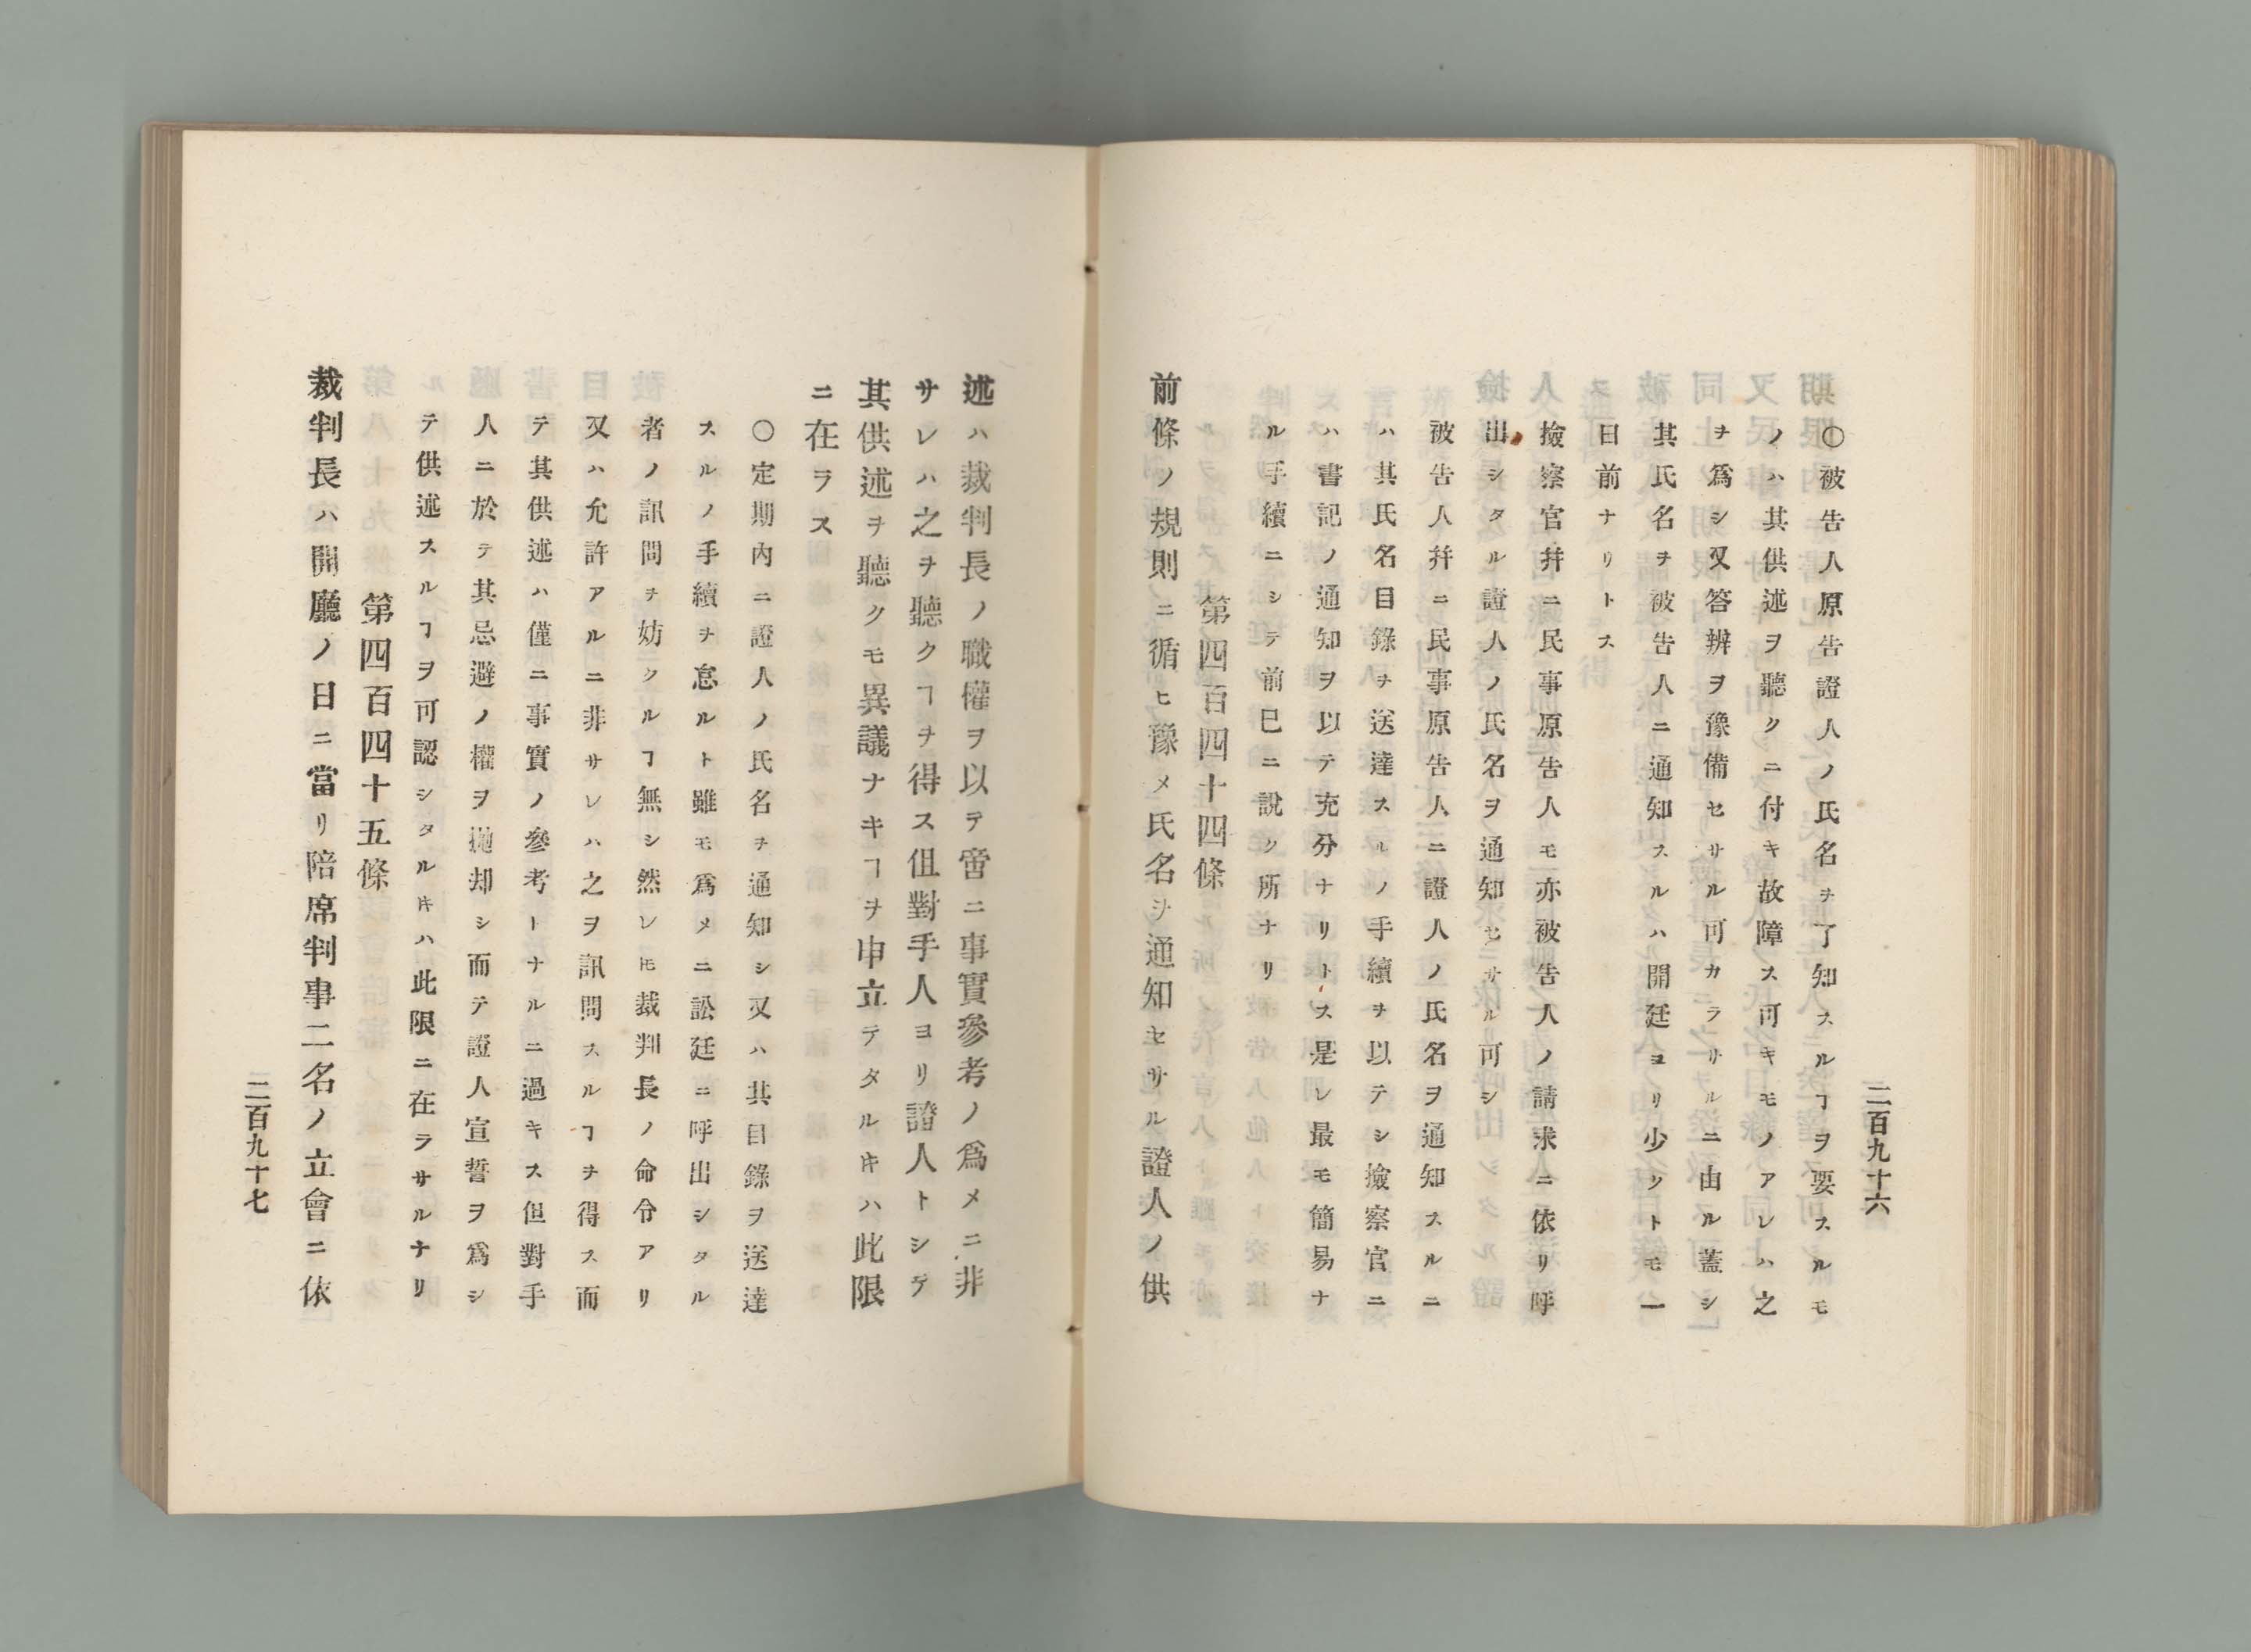 二百九十六
○被告人原告證人ノ氏名ヲ了知スルヿヲ要スルモ
ノハ其供述ヲ聽クニ付キ故障ス可キモノアレハ之
ヲ爲シ又答辨ヲ豫備セサル可カラサルニ由ル蓋シ
其氏名ヲ被告人ニ通知スルハ開廷ヨリ少クトモ一
日前ナリトス
撿察官幷ニ民事原告人モ亦被告人ノ請求ニ依リ呼
出シタル證人ノ氏名ヲ通知セサル可シ
被告人幷ニ民事原告人ニ證人ノ氏名ヲ通知スルニ
ハ其氏名目錄ヲ送達スルノ手續ヲ以テシ撿察官ニ
ハ書記ノ通知ヲ以テ充分ナリトス是レ最モ簡易ナ
ル手續ニシテ前已ニ說ク所ナリ
第四百四十四條
前條ノ規則ニ循ヒ豫メ氏名ヲ通知セサル證人ノ供
述ハ裁判長ノ職權ヲ以テ啻ニ事實參考ノ爲メニ非
サレハ之ヲ聽クヿヲ得ス伹對手人ヨリ證人トシテ
其供述ヲ聽クモ異議ナキヿヲ申立テタルキハ此限
ニ在ラス
○定期內ニ證人ノ氏名ヲ通知シ又ハ其目錄ヲ送達
スルノ手續ヲ怠ルト雖モ爲メニ訟廷ニ呼出シタル
者ノ訊問ヲ妨クルヿ無シ然レ𪜈裁判長ノ命令アリ
又ハ允許アルニ非サレハ之ヲ訊問スルヿヲ得ス而
テ其供述ハ僅ニ事實ノ參考トナルニ過キス但對手
人ニ於テ其忌避ノ權ヲ抛却シ而テ證人宣誓ヲ爲シ
テ供述スルヿヲ可認シタルキハ此限ニ在ラサルナリ
第四百四十五條
裁判長ハ開廳ノ日ニ當リ陪席判事二名ノ立會ニ依
二百九十七